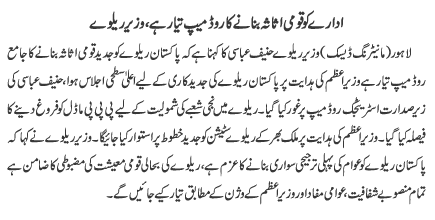 ادارے کو قومی اثاثہ بنانے کا روڈ میپ تیار ہے، وزیر ریلوے
لاہور (مانیٹرنگ ڈیسک) وزیر ریلوے حنیف عباسی کا کہنا ہے کہ پاکستان ریلوے کو جدید قومی اثاثہ بنانے کا جامع
روڈ میپ تیار ہے وزیراعظم کی ہدایت پر پاکستان ریلوے کی جدید کاری کے لیے اعلیٰ سطحی اجلاس ہوا، حنیف عباسی کی
زیر صدارت اسٹریٹجک روڈ میپ پر غور کیا گیا۔ ریلوے میں نجی شعبے کی شمولیت کے لیے پی پی پی ماڈل کو فروغ دینے کا
فیصلہ کیا گیا۔ وزیراعظم کی ہدایت پر ملک بھر کے ریلوے سٹیشن کو جدید خطوط پر استوار کیا جائیگا۔ وزیر ریلوے نے کہا کہ
پاکستان ریلوے کو عوام کی پہلی ترجیحی سواری بنانے کا عزم ہے، ریلوے کی بحالی قومی معیشت کی مضبوطی کا ضامن ہے
تمام منصوبے شفافیت، عوامی مفاد اور وزیراعظم کے وژن کے مطابق تیار کیے جائیں گے۔